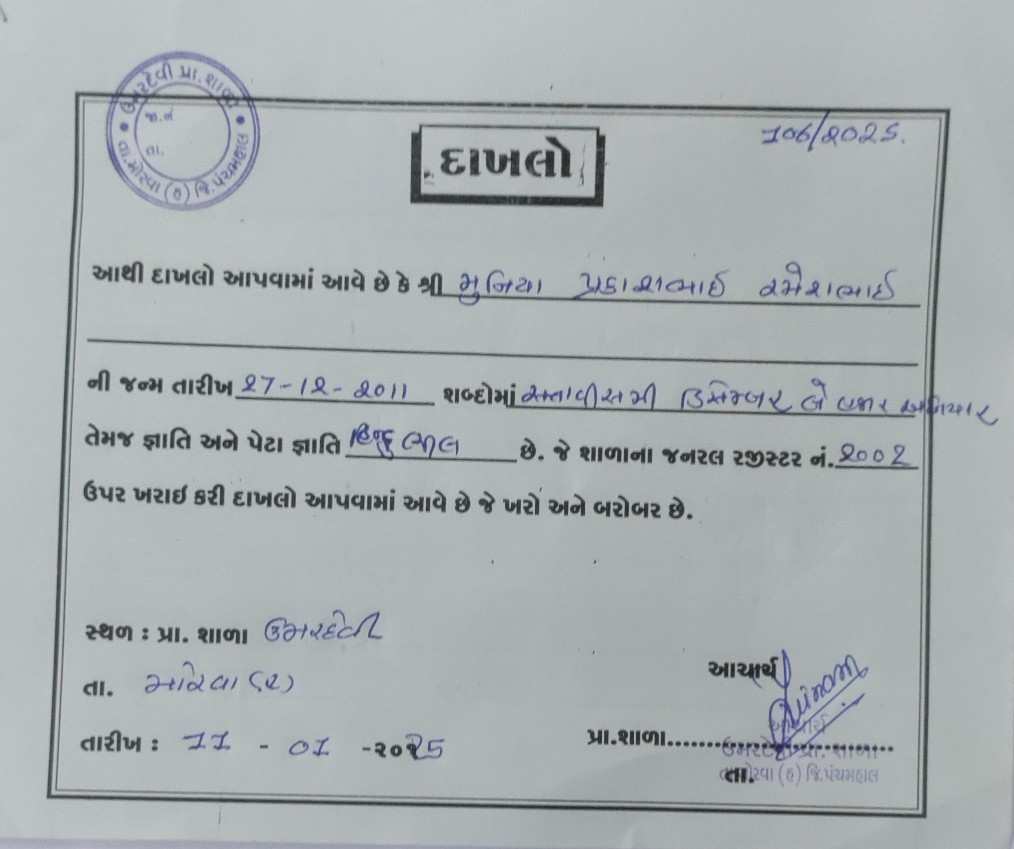 ઉમરદેવી પ્રા. શાળા
જા.નં
તા.
તા. મોરવા (હ) જિ. પંચમહાલ
106/2025.
દાખલો
આથી દાખલો આપવામાં આવે છે કે શ્રી મુનિયા પ્રકાશભાઈ રમેશભાઈ
ની જન્મ તારીખ 27-12-2011 શબ્દોમાં સત્તાવીસમી ડિસેમ્બર બે હજાર અગિયાર
તેમજ જ્ઞાતિ અને પેટા જ્ઞાતિ હિન્દુ ભીલ છે. જે શાળાના જનરલ રજીસ્ટર નં. 2002
ઉપર ખરાઇ કરી દાખલો આપવામાં આવે છે જે ખરો અને બરોબર છે.
સ્થળ : પ્રા. શાળા ઉમરદેવી
તા. મોરવા (હ)
તારીખ : 11 - 01 -૨૦25
આચાર્ય
આચાર્ય
પ્રા.શાળા..............................
ઉમરદેવી પ્રા. શાળા
તા.મોરવા (હ) જિ.પંચમહાલ